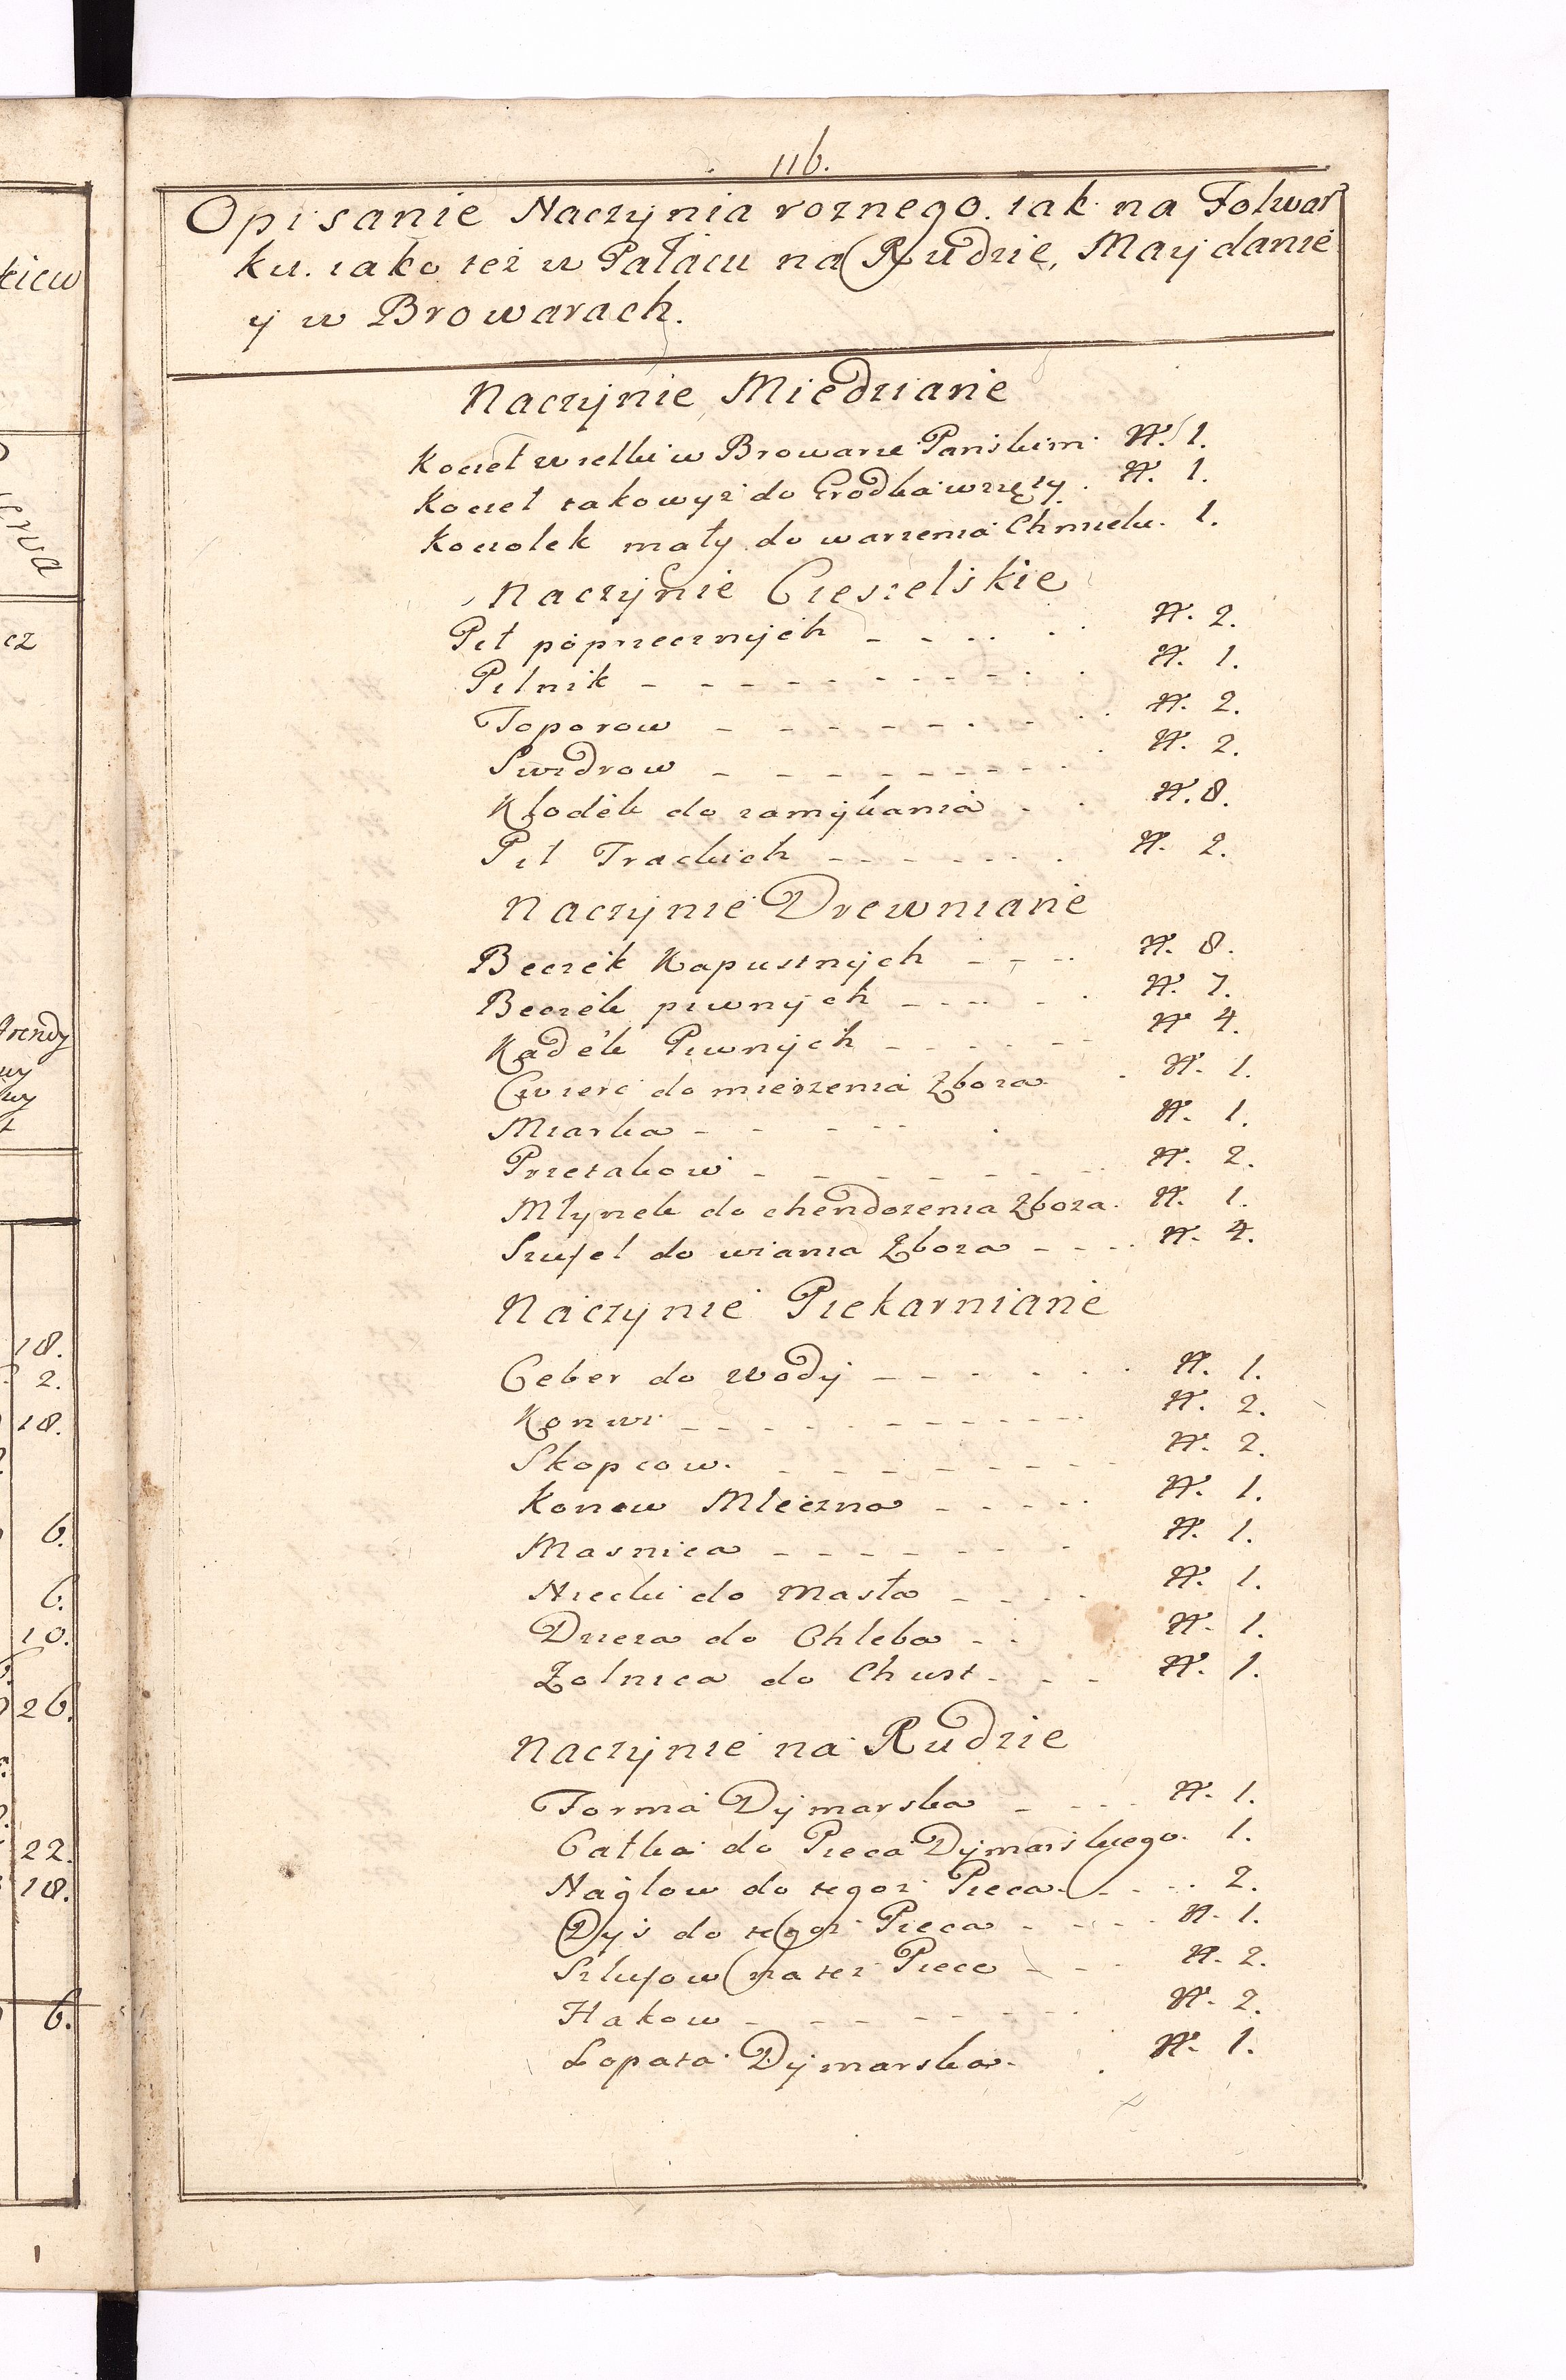 116.
Opisanie Naczynia roznego. iak na Folwar
ku. iako tez w Pałacu na Rudzie, Maydanie
y w Browarach.
Naczynie Miedziane
Kocieł wielki w Browarze Panskim N. 1.
Kocieł takowyż do wzięty. N. 1.
Kociolek mały do warzenia Chmielu. 1.
Naczynie Ciesielskie
Pił poprzecznych N. 2.
Pilnik N. 1.
Toporow N. 2.
Swidrow N. 2.
Kłodek do zamykania N. 8.
Pił Trackich N. 2.
Naczynie Drewniane
Beczek Kapustnych N. 8.
Beczek piwnych N. 7.
Kadek Piwnych N 4.
Cwierc do mierzenia Zboza N. 1.
Miarka N. 1.
Przetakow N. 2.
Młynek do chendozenia Zboza. N. 1.
Szufel do wiania Zboza N. 4.
Naczynie Piekarniane
Ceber do wody N. 1.
Konwi N. 2.
Skopcow. N. 2.
Konew Mleczna N. 1.
Masnica N. 1.
Niecki do Masła N. 1.
Dzieza do Chleba N. 1.
Zolnica do Chust N. 1.
Naczynie na Rudzie
Forma Dymarska N. 1.
Całka do Pieca Dymarskiego. 1.
Naglow do tegoz Pieca. 2.
Dys do tegoz Pieca N. 1.
Szlufow na tez Piece N. 2.
Hakow N. 2.
Łopata Dymarska. N. 1.
kiew
cz
Arendy
18.
2.
18.
6.
6.
10.
26.
22.
18.
6.